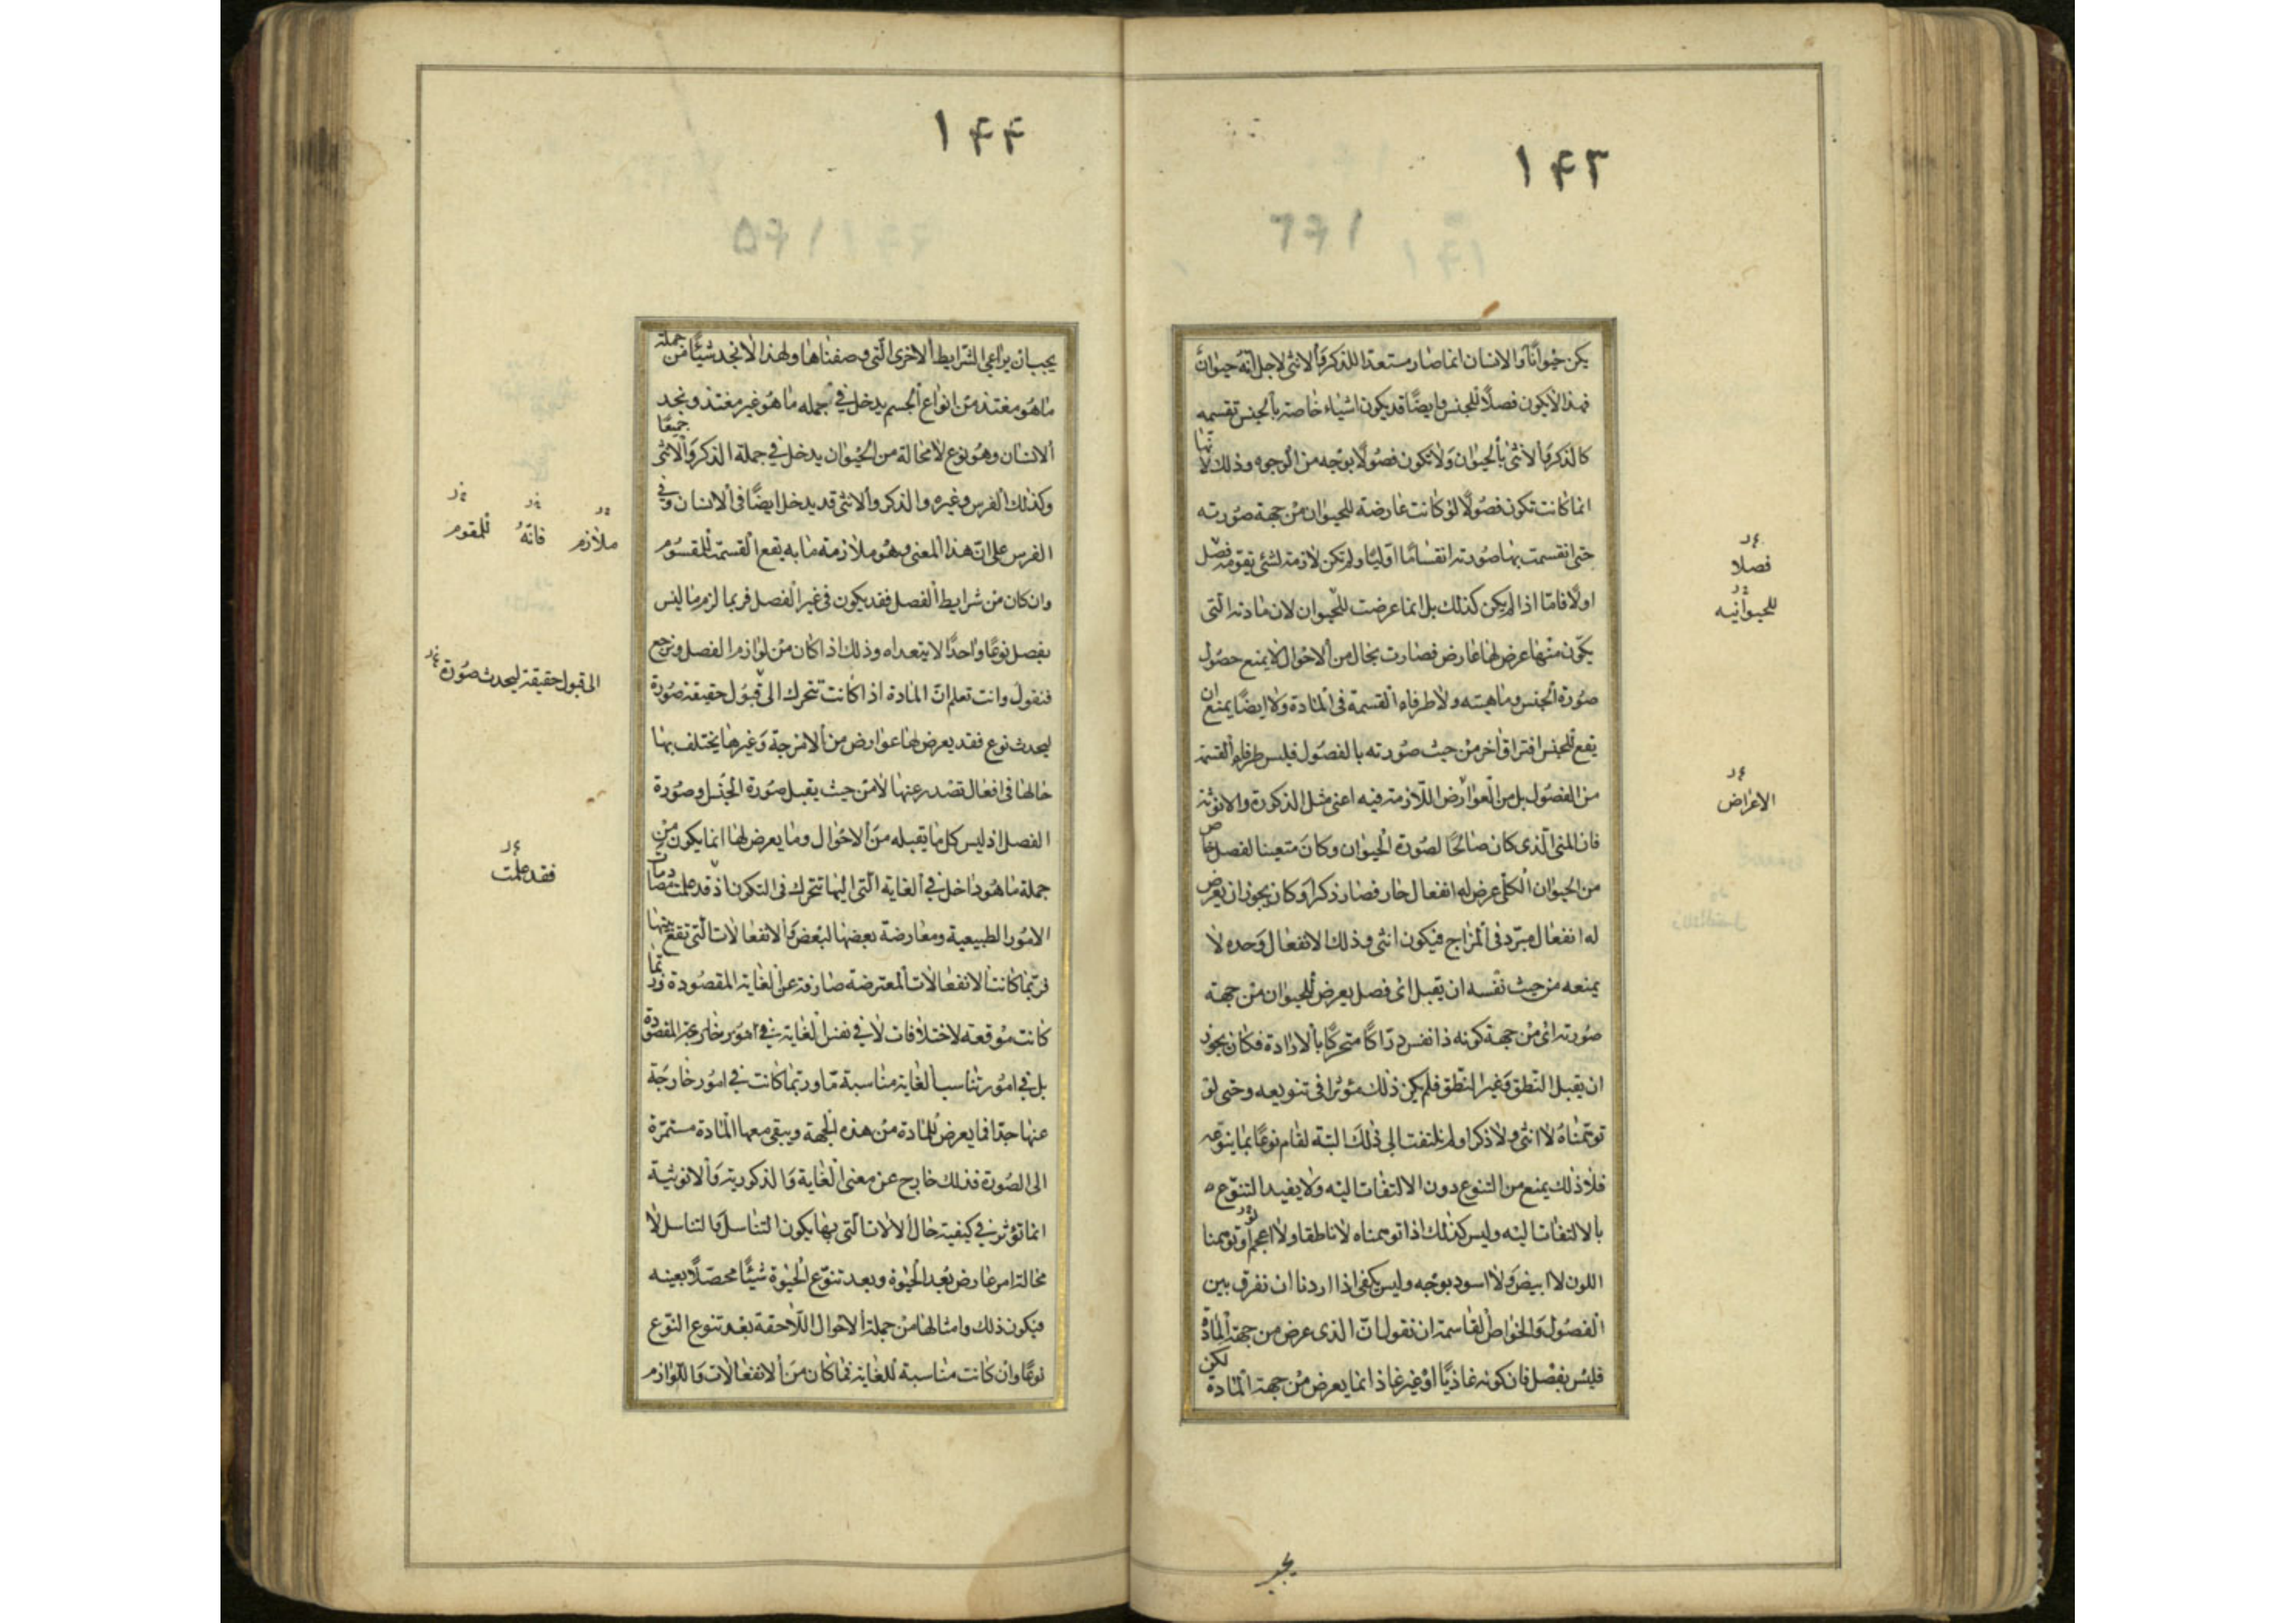 ۱۴۳
يكن حيوانا والانسان انما صار مستعدا للذكر والانثى لاجل انه حيوان
فهذا لا يكون فصلا للجنس وايضا قد يكون اشياء خاصة بالجنس تقسمه
كالذكر والانثى بالحيوان ولا يكون فصولا بوجه من الوجوه وذلك لانها
انما كانت تكون فصولا لو كانت عارضة للحيوان من جهة صورته
حتى انقسمت بها صورته انقساما اوليا ولم تكن لازمة لشئ يقومه فصل
اولا فاما اذا لم يكن كذلك بل انما عرضت للحيوان لان مادته التى
يكون منها عرض لها عارض فصارت بحال من الاحوال لا يمنع حصول
صورة الجنس وماهيته ولا طرفاه القسمة فى المادة ولا ايضا يمنع ان
يقع للجنس افتراق اخر من حيث صورته بالفصول فليس طرفاه القسمة
من الفصول بل من العوارض اللازمة فيه اعنى مثل الذكورة والانوثة
فان المنى الذى كان صالحا لصورة الحيوان وكان متعينا لفصل خاص
من الحيوان الكلى عرض له انفعال حار فصار ذكرا وكان يجوز ان يعرض
له انفعال مبرد فى المزاج فيكون انثى وذلك الانفعال وحده لا
يمنعه من حيث نفسه ان يقبل اى فصل يعرض للحيوان من جهة
صورته اى من جهة كونه ذا نفس دراكا متحركا بالارادة فكان يجوز
ان يقبل النطق وغير النطق فلم يكن ذلك مؤثرا فى تنويعه وحتى لو
توهمناه لا انثى ولا ذكرا ولم نلتفت الى ذلك البتة لقام نوعا بما ينوعه
فلا ذلك يمنع من التنوع دون الالتفات اليه ولا يفيد التنوع
بالالتفات اليه وليس كذلك اذا توهمناه لا ناطقا ولا اعجم او توهمنا
اللون لا ابيض ولا اسود بوجه وليس يكفى اذا اردنا ان نفرق بين
الفصول والخواص القاسمة ان نقول ان الذى عرض من جهة المادة
فليس بفصل فان كونه غاذيا او غير غاذ انما يعرض من جهة المادة لكن
فصلا
للحيوانيه
الاعراض
يجب
۱۴۴
يجب ان يراعى الشرايط الاخرى التى وصفناها ولهذا لا نجد شيئا من جملة
ما هو مغتذ من انواع الجسم يدخل فى جمله ما هو غير مغتذ ونجد
الانسان وهو نوع لا محالة من الحيوان يدخل فى جملة الذكر والانثى جميعا
وكذلك الفرس وغيره والذكر والانثى قد يدخل ايضا فى الانسان وفى
الفرس على ان هذا المعنى وهو ملازمة ما به يقع القسمة للمقسوم
وان كان من شرايط الفصل فقد يكون فى غير الفصل فربما لزم ما ليس
بفصل نوعا واحدا لا يتعداه وذلك اذا كان من لوازم الفصل ونرجع
فنقول وانت تعلم ان المادة اذا كانت تتحرك الى قبول حقيقة صورة
ليحدث نوع فقد يعرض لها عوارض من الامزجة وغيرها يختلف بها
حالها فى افعال تصدر عنها لا من حيث يقبل صورة الجنس وصورة
الفصل اذ ليس كل ما يقبله من الاحوال وما يعرض لها انما يكون من
جملة ما هو داخل فى الغاية التى اليها تتحرك فى التكون اذ قد علمت مصادمات
الامور الطبيعية ومعارضة بعضها لبعض والانفعالات التى تقع بينها
فربما كانت الانفعالات المعترضة صارفة عن الغاية المقصودة وربما
كانت موقعه لاختلافات لا فى نفس الغاية فى امور خارجة المقصودة
بل فى امور تناسب الغاية مناسبة ما وربما كانت فى امور خارجة
عنها جدا فما يعرض للمادة من هذه الجهة ويبقى معها المادة مستمرة
الى الصورة فذلك خارج عن معنى الغاية والذكورية والانوثية
انما تؤثر فى كيفية حال الالات التى بها يكون التناسل والتناسل لا
محالة امر عارض بعد الحيوة وبعد تنوع الحيوة شيئا محصلا بعينه
فيكون ذلك وامثالها من جملة الاحوال اللاحقة بعد تنوع النوع
نوعا وان كانت مناسبة للغاية فما كان من الانفعالات واللوازم
ملازم فانه للمقوم
الى قبول حقيقة ليحدث صورة
فقد علمت